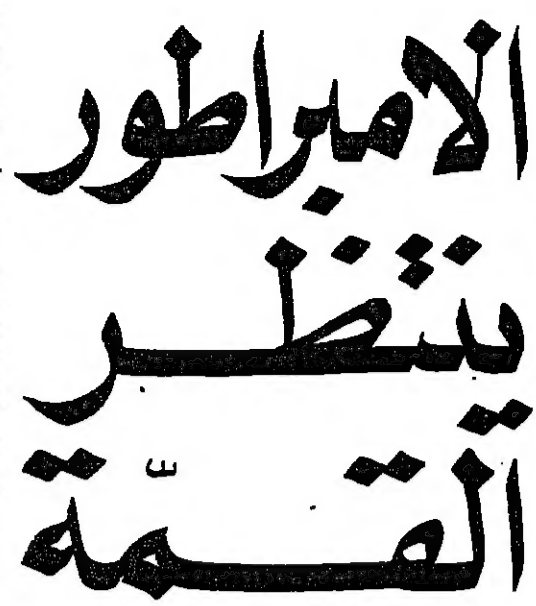 الامبراطور
ينتظر
القمّة